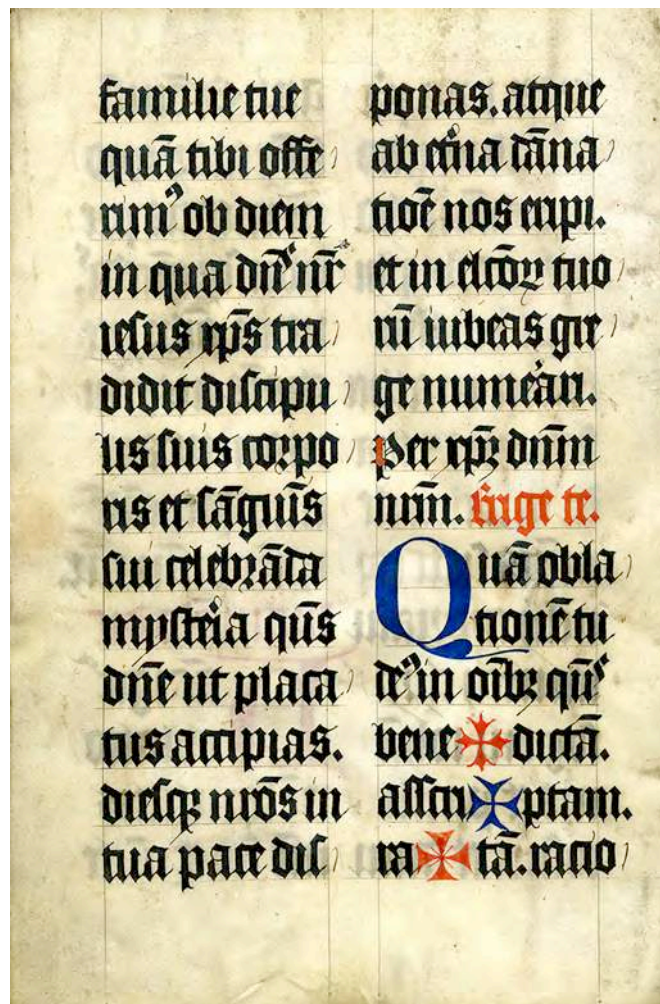 familie tue
quā tibi offe
rimꝰ ob diem
in qua dn̄s nr̄
iesus xp̄s tra
didit discipu
lis suis corpo
ris et sāguīs
sui celebrāda
mysteria qūs
dn̄e ut placa
tus accipias.
diesqꝫ nr̄os in
tua pace dis
ponas. atque
ab et̓na dāna
tiōe nos eripi.
et in elc̄oꝝ tuo
rū iubeas gre
ge num̓ari.
Per xp̄m dn̄m
nr̄m. Erige te.
Quā obla
tionē tu
de' in oībꝫ qūs
bene ✠ dictā.
ascri ✠ ptam.
ra ✠ tā. racio